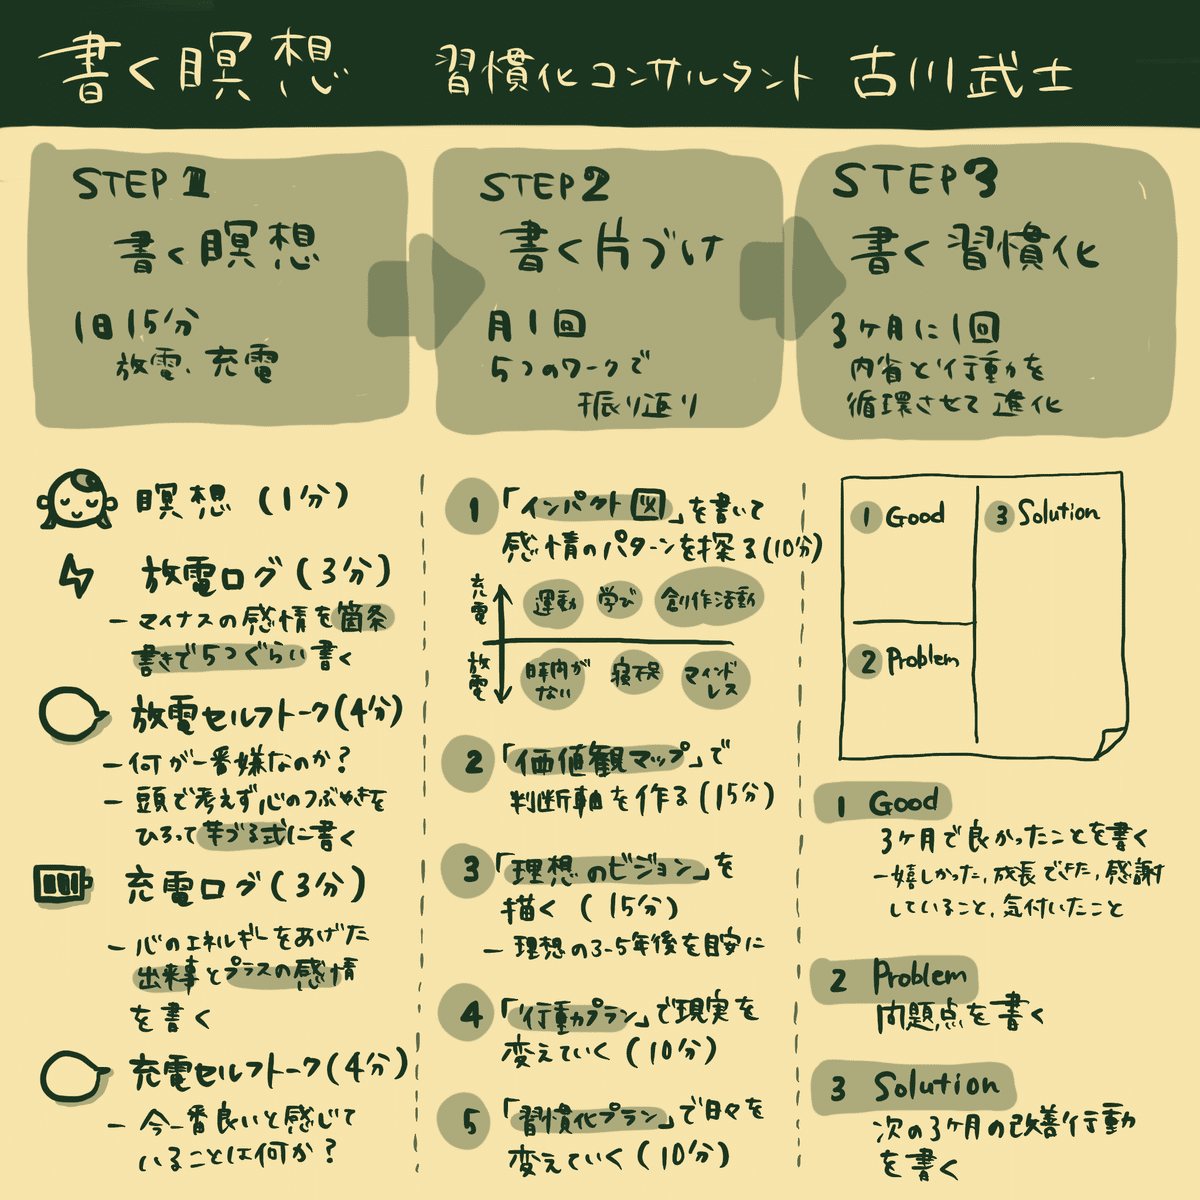 書く瞑想　習慣化コンサルタント 古川武士
STEP 1
書く瞑想
1日15分
放電、充電
STEP2
書く片づけ
月1回
5つのワークで
振り返り
STEP3
書く習慣化
3ヶ月に1回
内省と行動を
循環させて進化
瞑想（1分）
放電ログ（3分）
－マイナスの感情を箇条
書きで5つぐらい書く
放電セルフトーク（4分）
－何が一番嫌なのか？
－頭で考えず心のつぶやきを
ひろって芋づる式に書く
充電ログ（3分）
－心のエネルギーをあげた
出来事とプラスの感情
を書く
充電セルフトーク（4分）
－今一番良いと感じて
いることは何か？
1「インパクト図」を書いて
感情のパターンを探る（10分）
充電
運動 学び 創作活動
放電
時間が
ない
寝不足
マインド
レス
2「価値観マップ」で
判断軸を作る（15分）
3「理想のビジョン」を
描く（15分）
－理想の3-5年後を目安に
4「行動プラン」で現実を
変えていく（10分）
5「習慣化プラン」で日々を
変えていく（10分）
1 Good
3 Solution
2 Problem
1 Good
3ヶ月で良かったことを書く
－嬉しかった、成長できた、感謝
していること、気付いたこと
2 Problem
問題点を書く
3 Solution
次の3ヶ月の改善行動
を書く